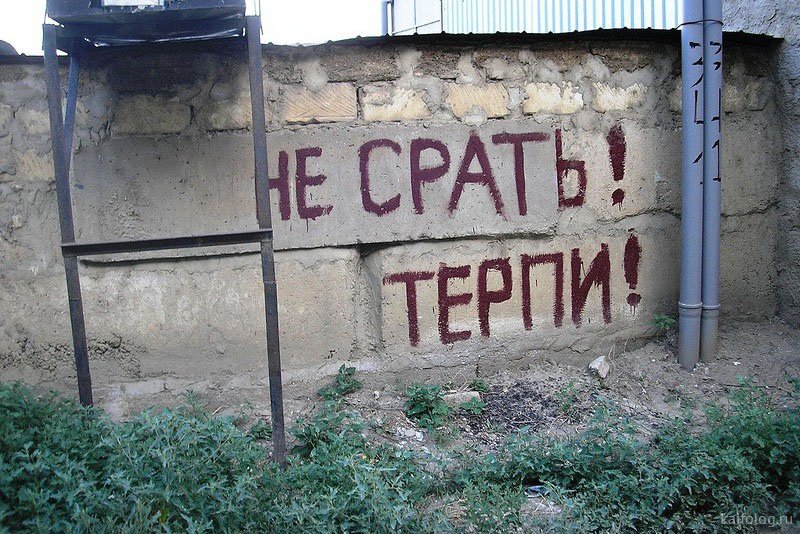 НЕ СРАТЬ!
ТЕРПИ!
kaifolog.ru